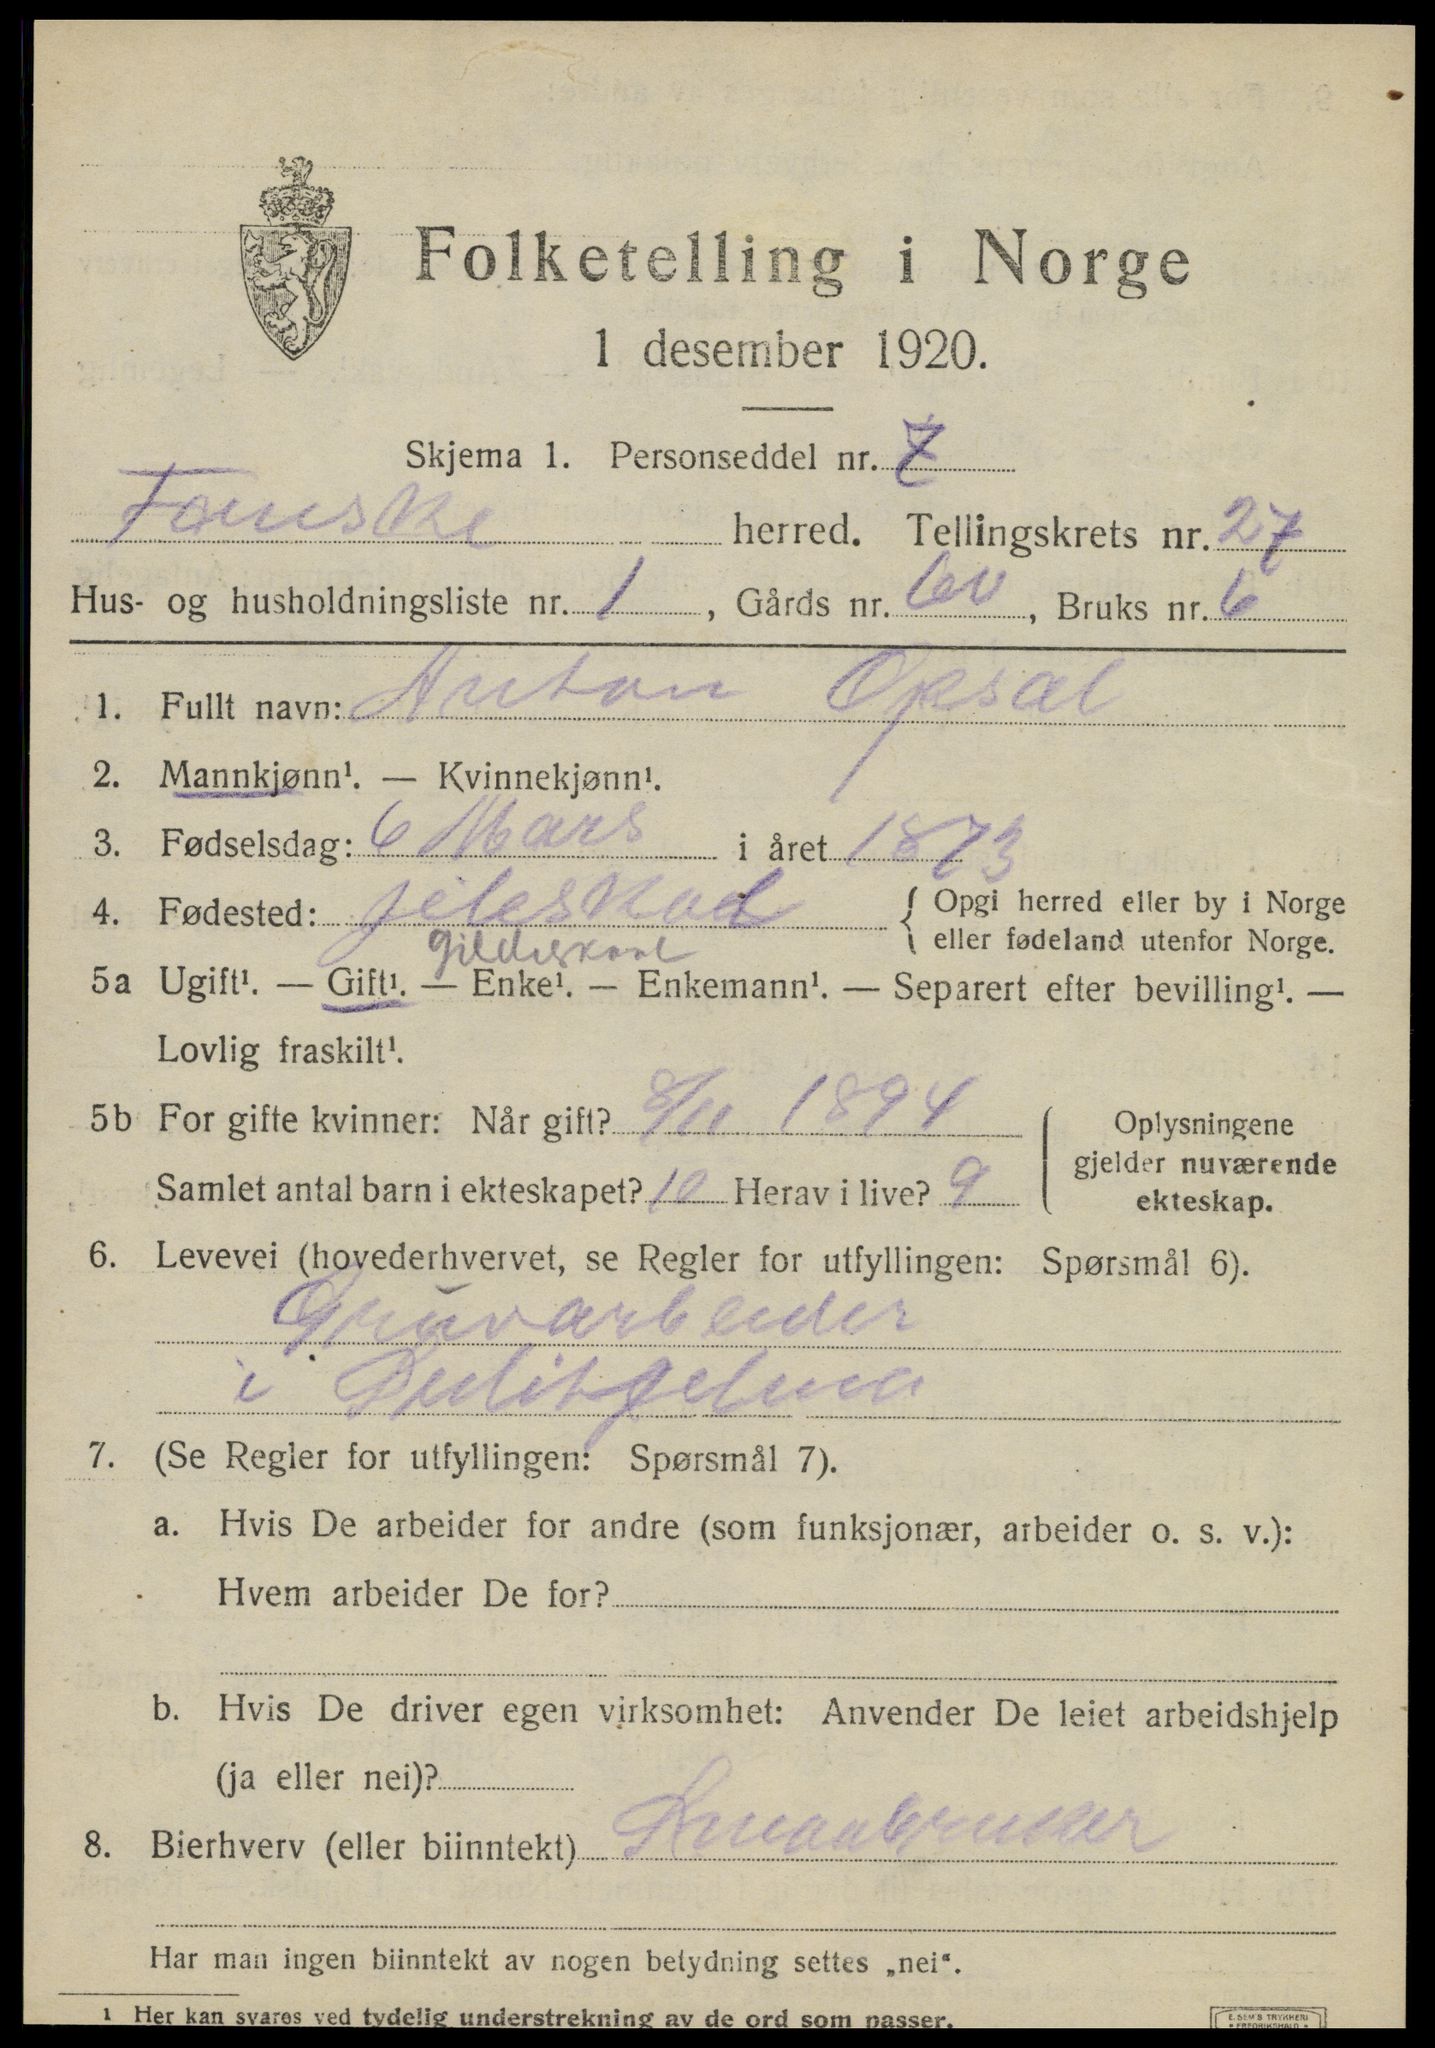 Folketelling i Norge
1 desember 1920.
Skjema 1. Personseddel nr. 7
Fauske herred. Tellingskrets nr. 27
Hus- og husholdningsliste nr. 1, Gårds nr. 60, Bruks nr. 6
1. Fullt navn: Anton Opsal
2. Mannkjønn¹. — Kvinnekjønn¹.
3. Fødselsdag: 6 Mars i året 1873
4. Fødested: jileskaal { Opgi herred eller by i Norge
eller fødeland utenfor Norge.
Gildeskaal
5a Ugift¹. — Gift¹. — Enke¹. — Enkemann¹. — Separert efter bevilling¹. —
Lovlig fraskilt¹.
5b For gifte kvinner: Når gift? 8/11 1894
Samlet antal barn i ekteskapet? 10 Herav i live? 9
Oplysningene
gjelder nuværende
ekteskap.
6. Levevei (hovederhvervet, se Regler for utfyllingen: Spørsmål 6).
Gruvarbeider
i Sulitjelma
7. (Se Regler for utfyllingen: Spørsmål 7).
a. Hvis De arbeider for andre (som funksjonær, arbeider o. s. v.):
Hvem arbeider De for?
b. Hvis De driver egen virksomhet: Anvender De leiet arbeidshjelp
(ja eller nei)?
8. Bierhverv (eller biinntekt) Smaabruker
Har man ingen biinntekt av nogen betydning settes „nei“.
1 Her kan svares ved tydelig understrekning av de ord som passer.
E. SEM'S TRYKKERI
FREDRIKSHALD